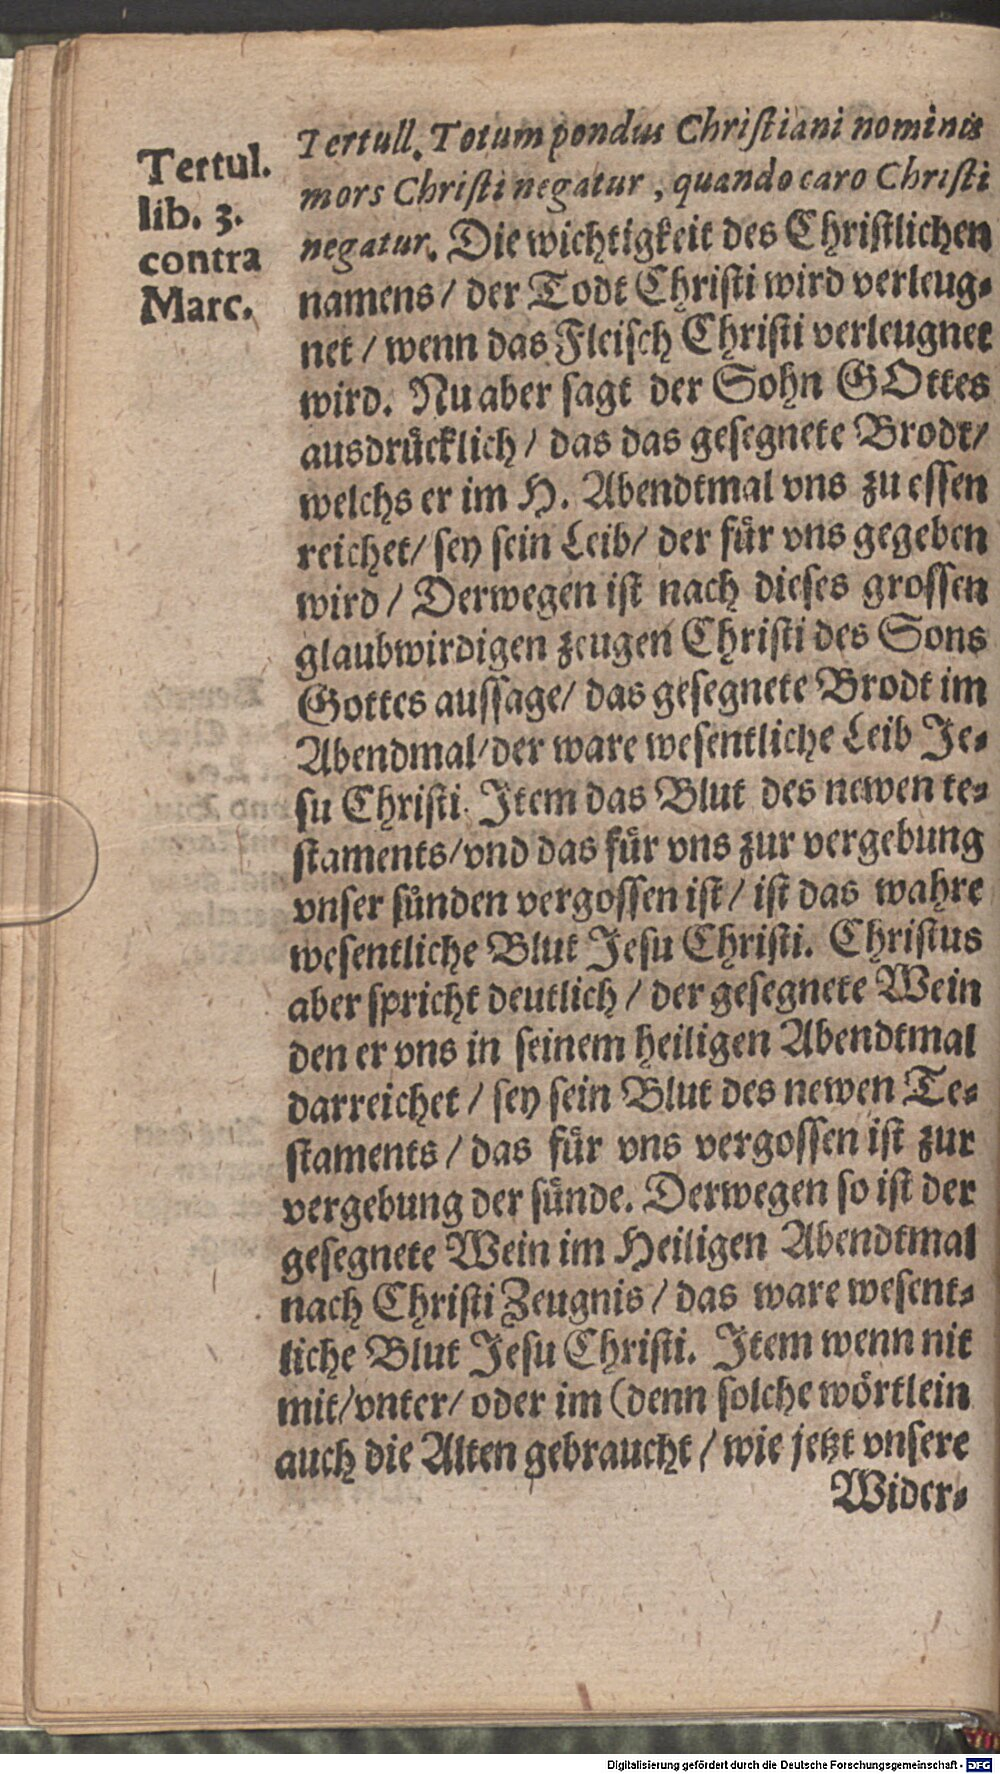 Tertul.
lib. 3.
contra
Marc.
Tertull. Totum pondus Christiani nominis
mors Christi negatur, quando caro Christi
negatur. Die wichtigkeit des Christlichen
namens / der Todt Christi wird verleug-
net / wenn das Fleisch Christi verleugnet
wird. Nu aber sagt der Sohn GOttes
ausdrücklich / das das gesegnete Brodt /
welchs er im H. Abendtmal vns zu essen
reichet / sey sein Leib / der für vns gegeben
wird / Derwegen ist nach dieses grossen
glaubwirdigen zeugen Christi des Sons
Gottes aussage / das gesegnete Brodt im
Abendmal / der ware wesentliche Leib Je-
su Christi. Item das Blut des newen te-
staments / vnd das für vns zur vergebung
vnser sünden vergossen ist / ist das wahre
wesentliche Blut Jesu Christi. Christus
aber spricht deutlich / der gesegnete Wein
den er vns in seinem heiligen Abendtmal
darreichet / sey sein Blut des newen Te-
staments / das für vns vergossen ist zur
vergebung der sünde. Derwegen so ist der
gesegnete Wein im Heiligen Abendtmal
nach Christi Zeugnis / das ware wesent-
liche Blut Jesu Christi. Item wenn nit
mit / vnter / oder im (denn solche wörtlein
auch die Alten gebraucht / wie jetzt vnsere
Wider-
Digitalisierung gefördert durch die Deutsche Forschungsgemeinschaft - DFG